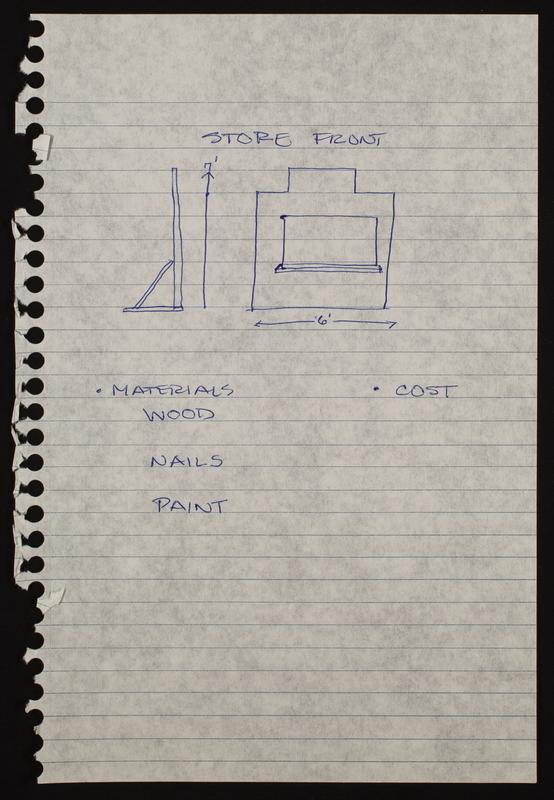 STORE FRONT
7'
6'
• MATERIALS • COST
WOOD
NAILS
PAINT